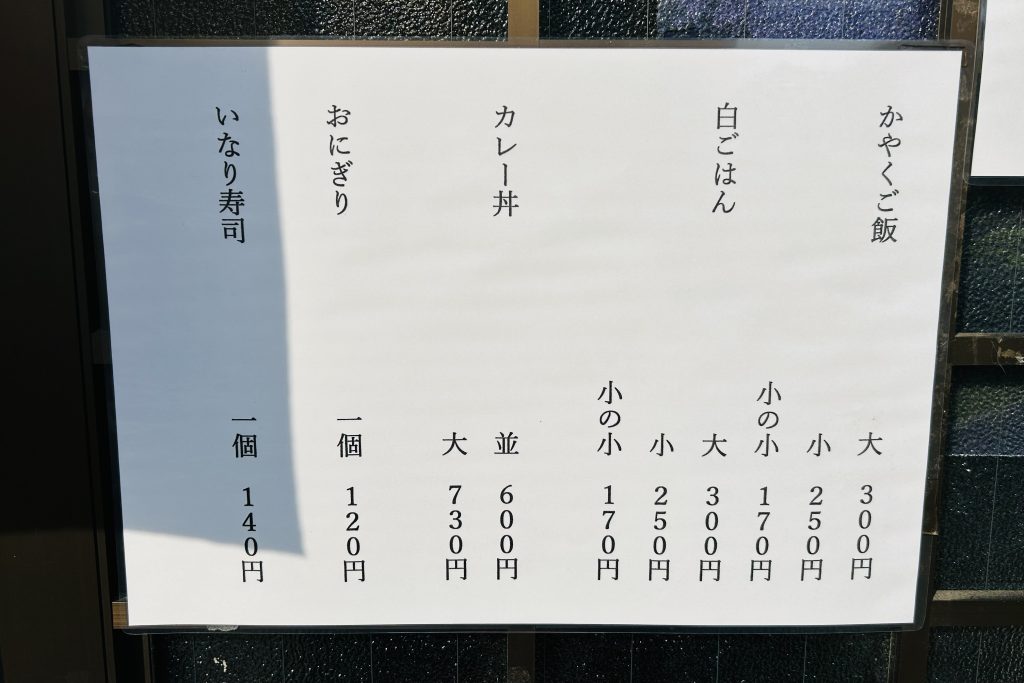 かやくご飯 大 300円
小 250円
小の小 170円
白ごはん 大 300円
小 250円
小の小 170円
カレー丼 並 600円
大 730円
おにぎり 一個 120円
いなり寿司 一個 140円